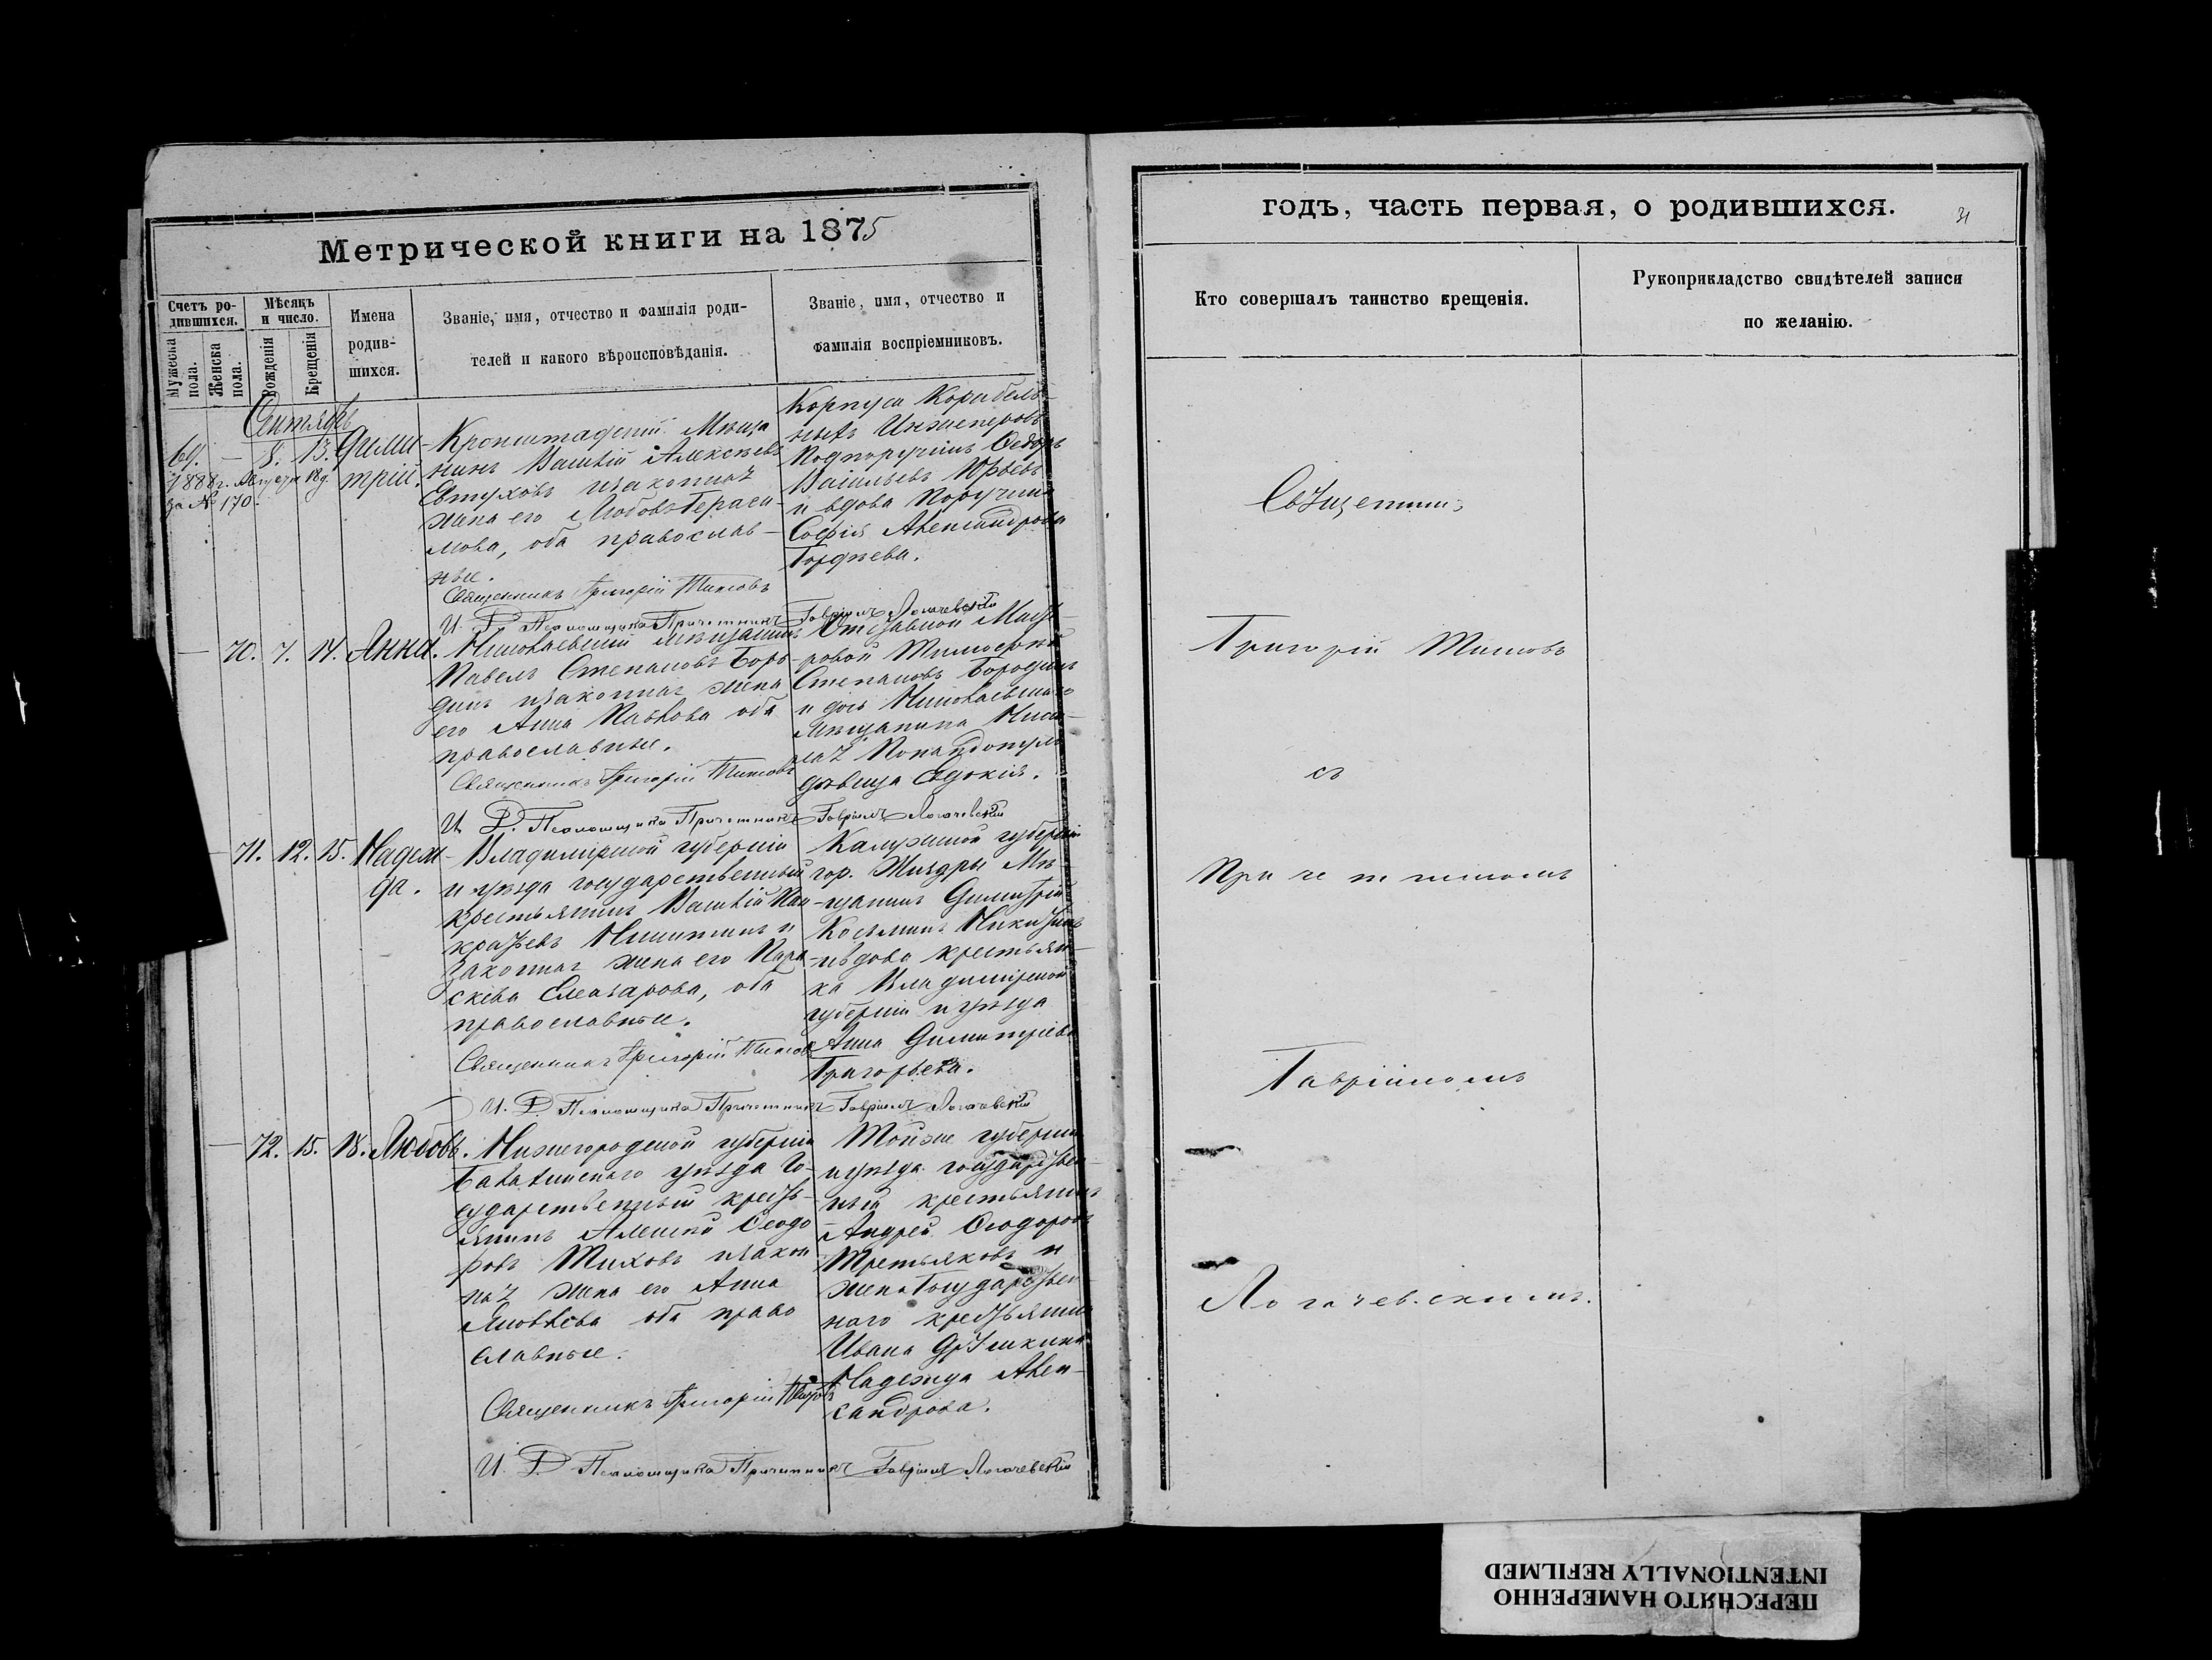 Метрической книги на 1875
Счетъ ро-
дившихся.
Мѣсяцъ
и число.
Мужеска
пола.
Женска
пола.
Рожденія
Крещенія
Имена
родив-
шихся.
Званіе, имя, отчество и фамилія роди-
телей и какого вѣроисповѣданія.
Званіе, имя, отчество и
фамилія воспріемниковъ.
Сентябрь
69. — 8. 13. Дими-
трій.
1888 г. Августа 18 д.
за № 170.
Кронштадскій Мѣща
нинъ Василій Алексѣевъ
законная
жена его Любовь Гераси-
мова, оба православ-
ные.
Священникъ Григорій Титовъ
И. Д. Псаломщика Причетникъ Гавріилъ Логачевскій
Корпуса Корабель-
ныхъ Инженеровъ
Подпоручикъ Ѳедоръ
Васильевъ Юрьевъ
и вдова Поручика
Софія Александрова
Гордѣева.
— 70. 7. 14. Анна.
Николаевскій мѣщанинъ
Павелъ Степановъ Боро-
динъ и законная жена
его Анна Павлова оба
православные.
Священникъ Григорій Титовъ
И. Д. Псаломщика Причетникъ Гавріилъ Логачевскій
Отставной Масте-
ровой Тимоѳей
Степановъ Бородинъ
и дочь Николаевскаго
Мѣщанина Нико-
лая
дѣвица Евдокія.
— 71. 12. 15. Надеж-
да.
Владимірской губерніи
и уѣзда государственный
крестьянинъ Василій Пан-
кратьевъ Никитинъ и
законная жена его Пара-
скева Елеазарова, оба
православные.
Священникъ Григорій Титовъ
И. Д. Псаломщика Причетникъ Гавріилъ Логачевскій
Калужской губерніи
гор. Жиздры Мѣ-
щанинъ Димитрій
Косьминъ Никитинъ
и вдова крестьян-
ка Владимірской
губерніи и уѣзда
Анна Димитріева
Григорьева.
— 72. 15. 18. Любовь.
Нижегородской губерніи
Балахнинскаго уѣзда Го-
сударственный кресть-
янинъ Алексѣй Ѳеодо
ровъ Тиховъ и закон
ная жена его Анна
Яковлева оба право
славные.
Священникъ Григорій Титовъ
И. Д. Псаломщика Причетникъ Гавріилъ Логачевскій
Той же губерніи
и уѣзда государствен-
ный крестьянинъ
Андрей Ѳеодоровъ
Третьяковъ и
жена Государствен-
наго крестьянина
Ивана
Надежда Алек-
сандрова.
годъ, часть первая, о родившихся.
31
Кто совершалъ таинство крещенія.
Рукоприкладство свидѣтелей записи
по желанію.
Священникъ
Григорій Титовъ
съ
Причетникомъ
Гавріиломъ
Логачевскимъ.
ПЕРЕСНЯТО НАМЕРЕННО
INTENTIONALLY REFILMED